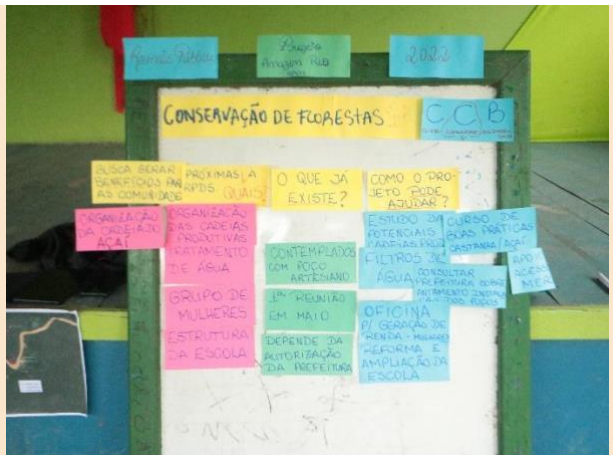 Reunião
Projeto
Amazon
2022
CONSERVAÇÃO DE FLORESTAS
C C B
BUSCA GERAR
BENEFÍCIOS PAR
AS COMUNIDADE
PRÓXIMAS A
RPDS. QUAIS?
O QUE JÁ
EXISTE?
COMO O PRO-
JETO PODE
AJUDAR?
ORGANIZAÇÃO
DA CADEIA DO
AÇAÍ
ORGANIZAÇÃO
DAS CADEIAS
PRODUTIVAS
TRATAMENTO
DE ÁGUA
GRUPO DE
MULHERES
ESTRUTURA
DA ESCOLA
CONTEMPLADOS
COM POÇO
ARTESIANO
1ª REUNIÃO
EM MAIO
DEPENDE DA
AUTORIZAÇÃO
DA PREFEITURA
ESTUDO DA
POTENCIAIS
CADEIAS PROD
CURSO DE
BOAS PRÁTICAS
CASTANHA/AÇAÍ
FILTROS DE
ÁGUA
CONSULTAR
PREFEITURA SOBRE
DOS POÇOS
OFICINA
P/ GERAÇÃO DE
RENDA - MULHERES
REFORMA E
AMPLIAÇÃO DA
ESCOLA